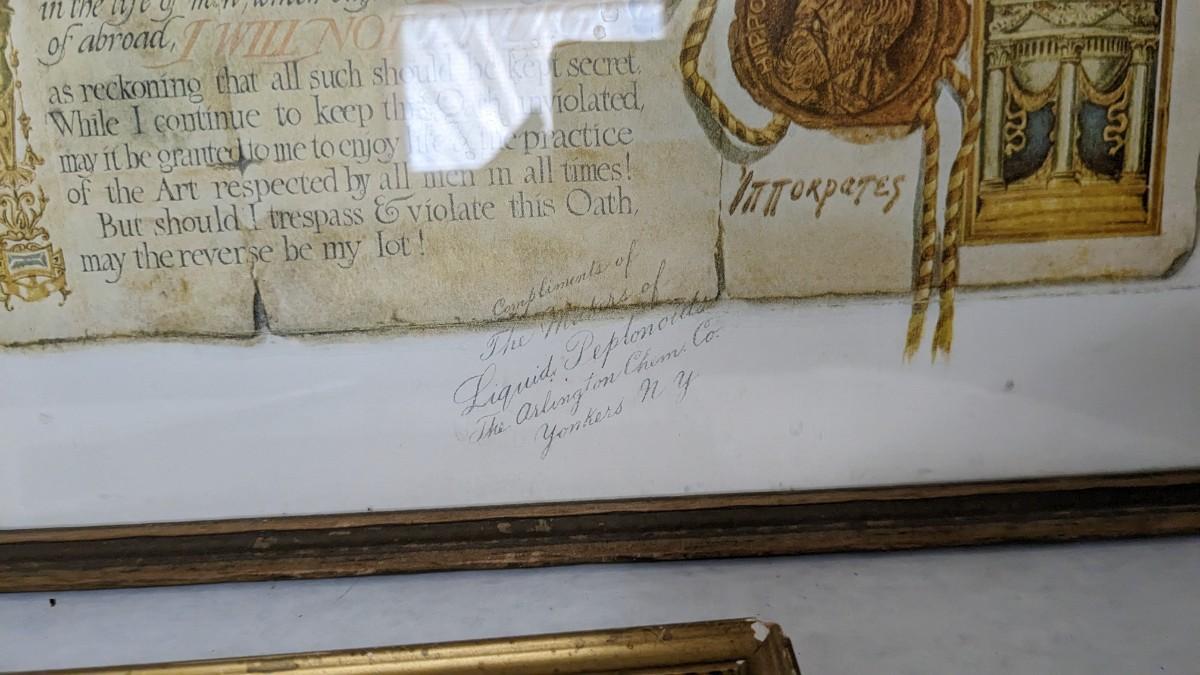 in the life of men, which
of abroad, I WILL NOT
as reckoning that all such should be kept secret.
While I continue to keep this Oath unviolated,
may it be granted to me to enjoy life & the practice
of the Art respected by all men in all times!
But should I trespass & violate this Oath,
may the reverse be my lot!
HIPPO
Ἱπποκρατες
Compliments of
The Makers of
Liquid Peptonoids
The Arlington Chem. Co.
Yonkers N Y